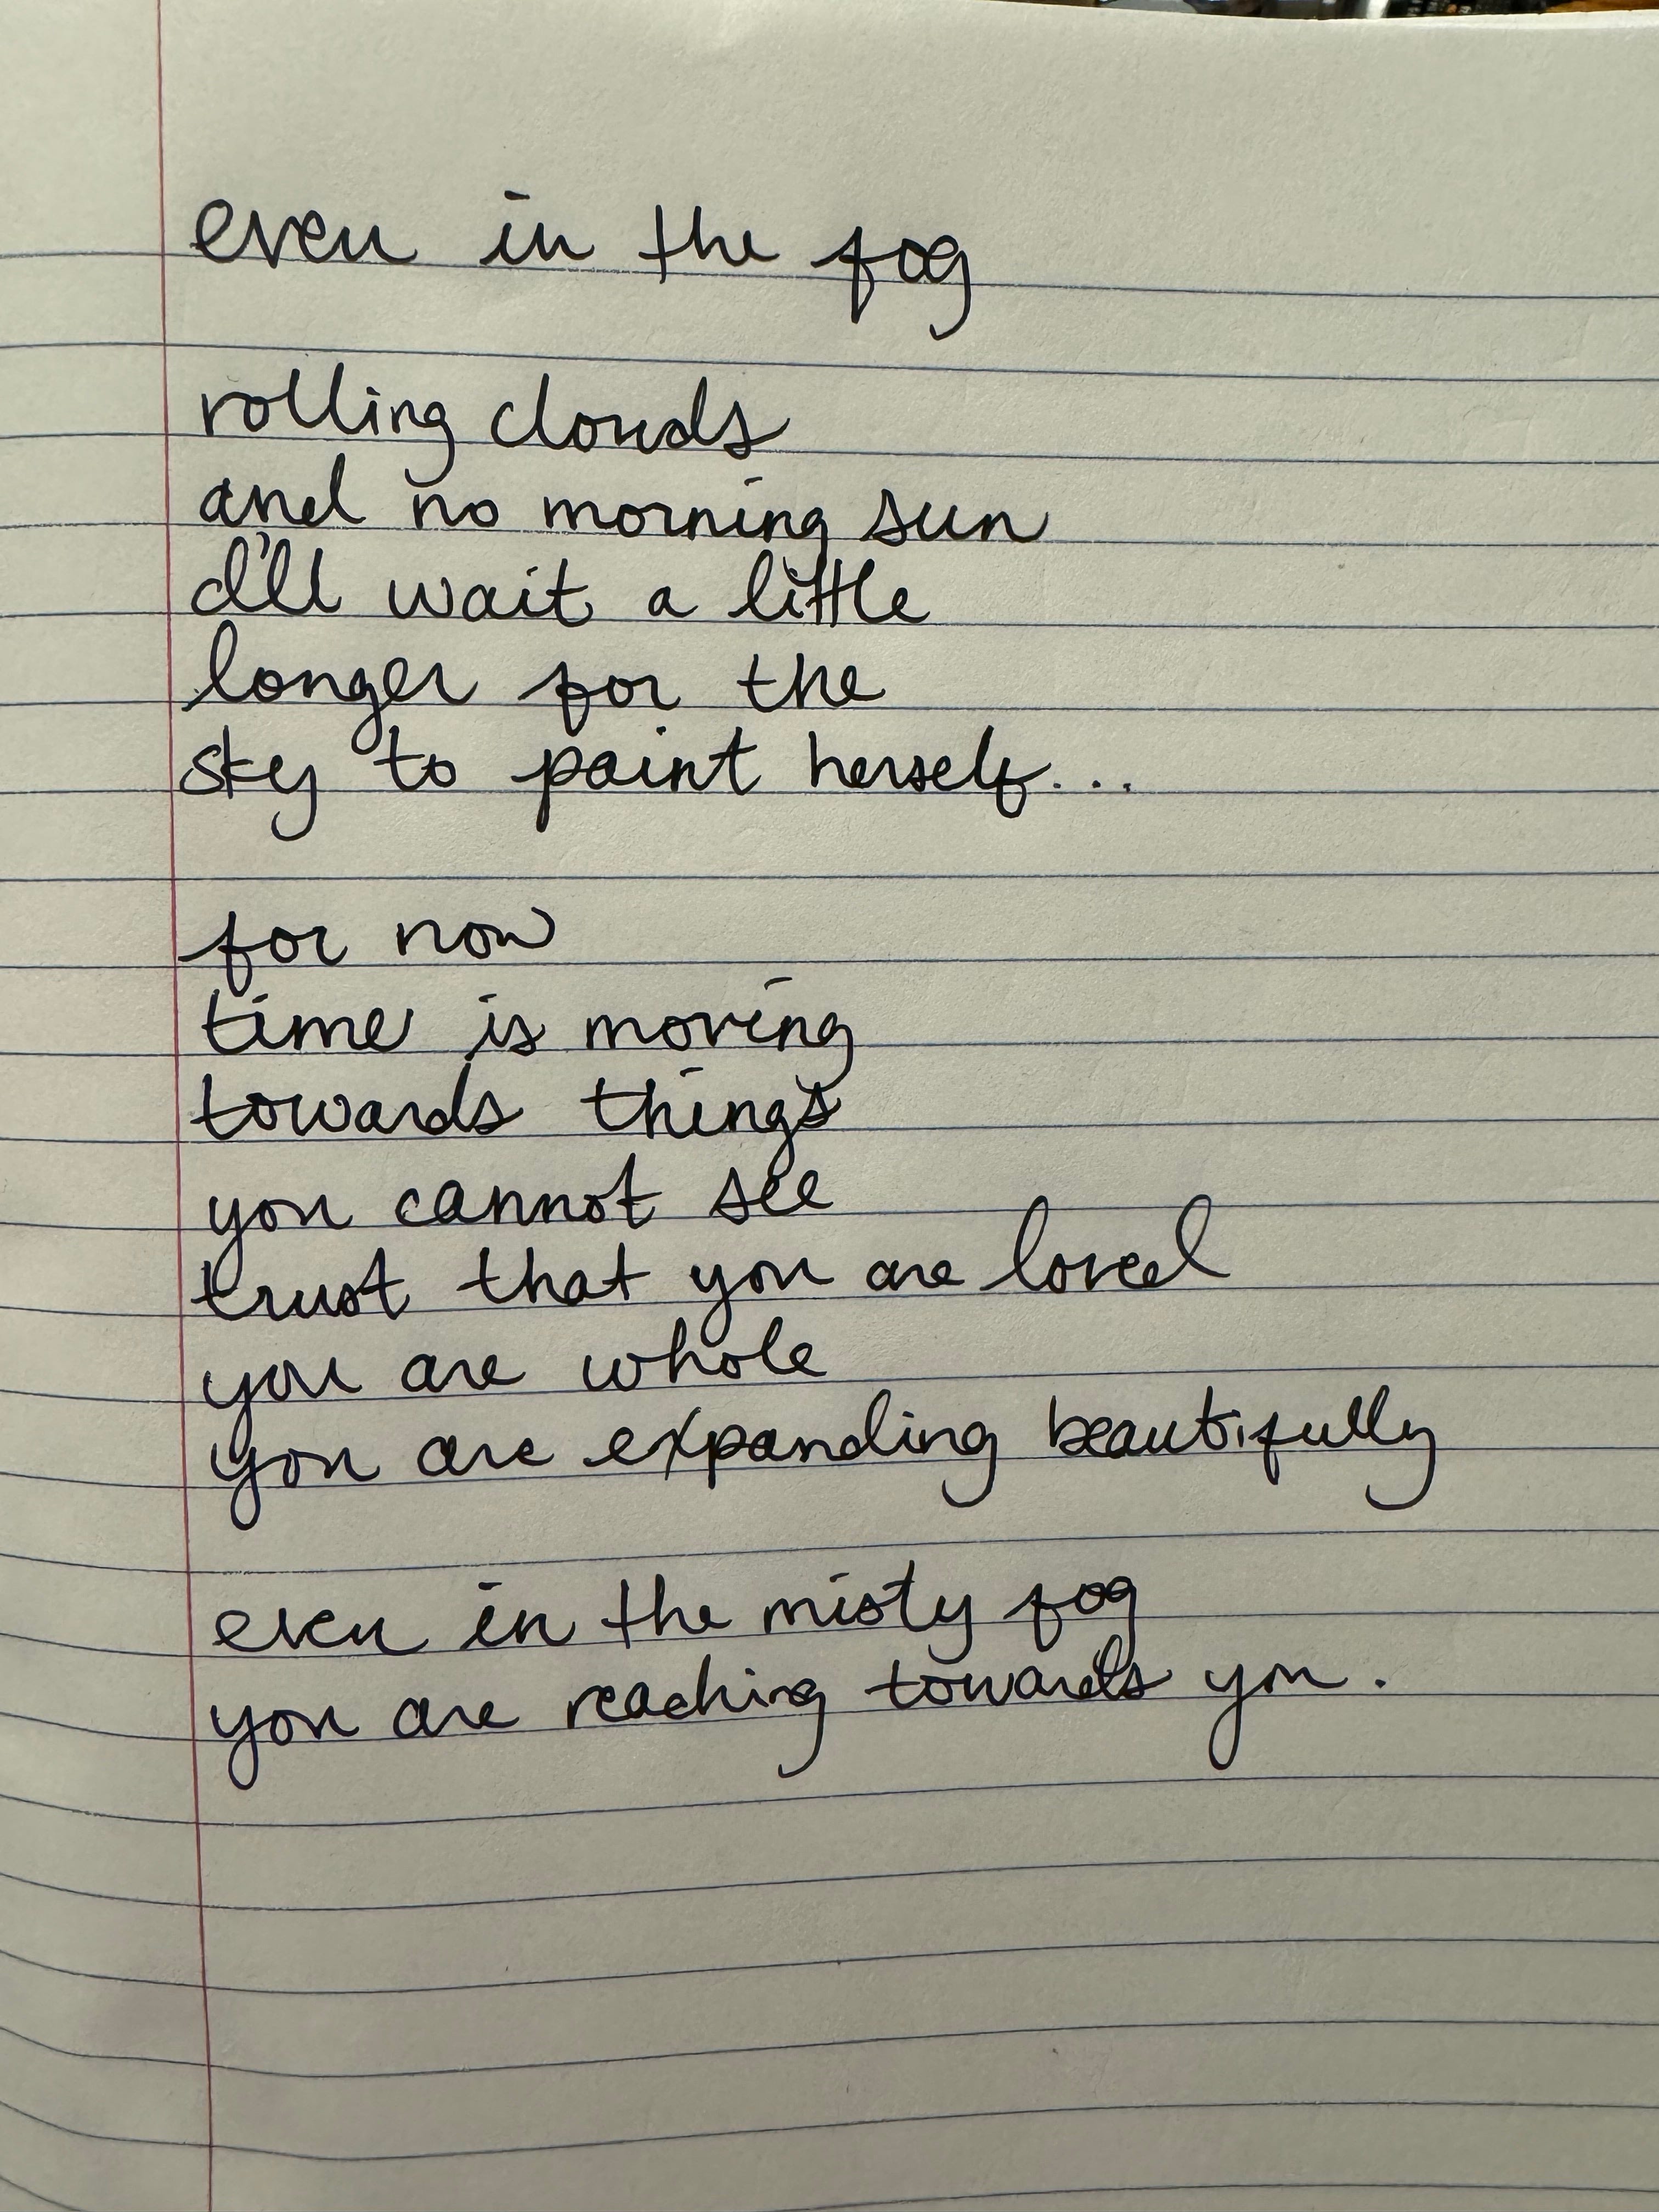 even in the fog
rolling clouds
and no morning sun
I'll wait a little
longer for the
sky to paint herself...
for now
time is moving
towards things
you cannot see
trust that you are loved
you are whole
you are expanding beautifully
even in the misty fog
you are reaching towards you.